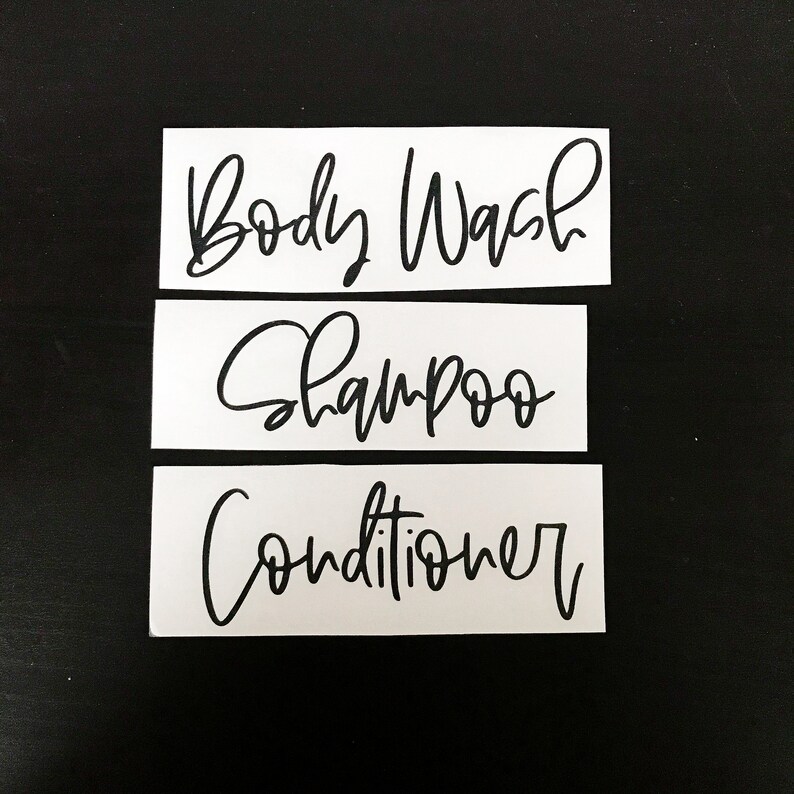 Body Wash
Shampoo
Conditioner